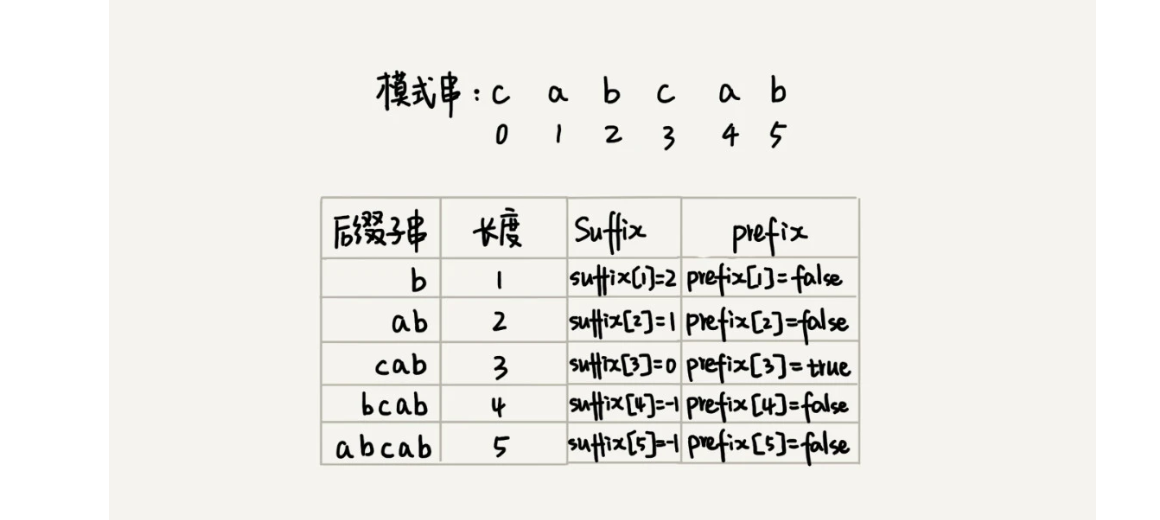 模式串:c a b c a b
0 1 2 3 4 5
后缀子串 长度 Suffix prefix
b 1 suffix[1]=2 prefix[1]=false
ab 2 suffix[2]=1 prefix[2]=false
cab 3 suffix[3]=0 prefix[3]=true
bcab 4 suffix[4]=-1 prefix[4]=false
abcab 5 suffix[5]=-1 prefix[5]=false